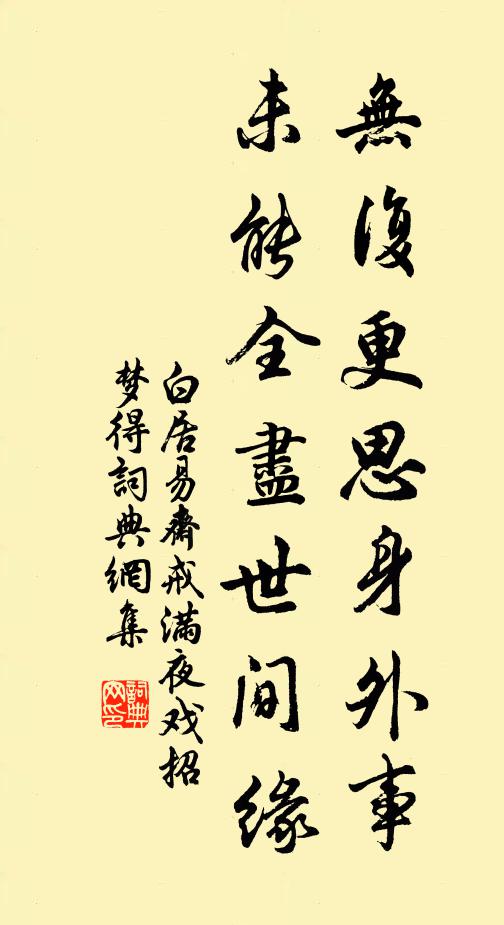 無復更思身外事
未能全盡世間緣
白居易齋戒滿夜戏招
梦得詞典網集
詞典网印